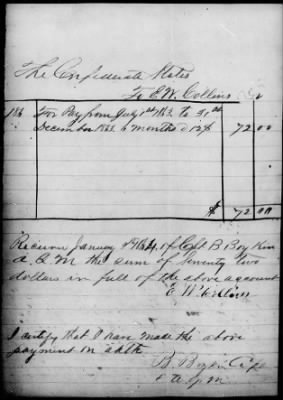 The Confederate States
To E.W. Collins Dr
186 For Pay from July 1st 1863. to 31st
December 1863. 6 months @ 12$ 72 00
$ 72 00
Received January 1864, of Capt B Boykin
A. Q. M the sum of Seventy two
dollars in full of the above account
E. W. Collins
I certify that I have made the above
payment on
B. Boykin Capt
& A. Q. M